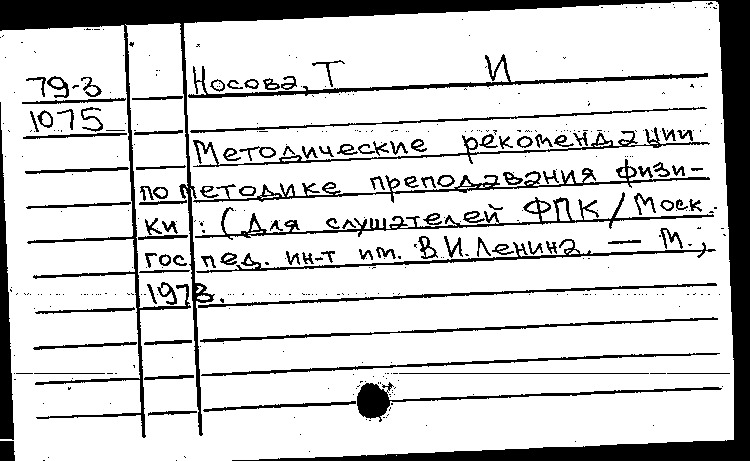 79-3 Носова, Т И
1075
Методические рекомендации
по методике преподавания физи-
ки : (Для слушателей ФПК / Моск.
гос пед. ин-т им. В.И. Ленина. — М.,
1978.